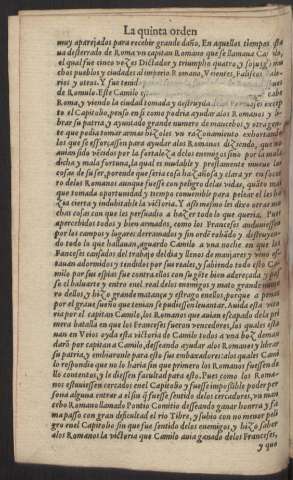 La quinta orden
muy aparejados para recebir grande daño, En aquellos tiempos esta
ua desterrado de Roma vn capitan Romano que se llamaua Camilo,
el qual fue cinco vezes Dictador y triumpho quatro, y sojuzgo mu
chos pueblos y ciudades al imperio Romano, Veientes, Faliscos
rios y otros. Y fue tenido
de Romulo. Este Camilo
Roma, y viendo la ciudad tomada y destruyda de los Franceses excep
to el Capitolio, penso en si como podria ayudar alos Romanos y
brar su patria, y ayunto grande numero de mancebos, y otra gen
te que podia tomar armas hizoles vn razonamiento exhortando
los que se esforçassen para ayudar alos Romanos diziendo, que no
auian sido vẽcidos por la fortaleza dlos enemigos sino por la mala
dicha y mala fortuna, la qual es mudable y prestamente mueue las
cosas de su ser, porende que seria cosa hazañosa y clara yr en socor
ro delos Romanos aunque fuesse con peligro delas vidas, quãto mas
que tomada oportunidad y tiempo conuenible para pelear el les ha
zia cierta y indubitable la victoria. Y assi mesmo les dixo otras mu
chas cosas con que les persuadio a hazer todo lo que queria. Pues
apercebidos todos y bien armados, como los Franceses anduuiessen
por los campos y lugares derramados y sin ordẽ robãdo y destruyen
do todo lo que hallauan, aguardo Camilo a vna noche en que los
Franceses cansados del trabajo del dia y llenos de manjares y vino es
tauan adormidos y tendidos por sus reales, y sabiendo todo esto Ca
milo por sus espias fue contra ellos con su gẽte bien adereçada y pas
so el baluarte y entro enel real delos enemigos y mato grande nume
ro dellos, y hizo grande matança y estrago enellos, porque a penas
por el graue sueño que tenian se pudiessen leuantar. Auida esta victo
ria por el capitan Camilo, los Romanos que auian escapado dela pri
mera batalla en que los Franceses fueron vencedores, los quales esta
uan en Veios oyda esta victoria de Camilo todos a vna boz deman
darõ por capitan a Camilo, desseando ayudar alos Romanos y librar
su patria, y embiaronle para esto sus embaxadores: alos quales Cami
lo respondio que no lo haria sin que primero los Romanos fuessen de
llo contentos, y le diessen facultad para esto. Pues como los Roma-
nos estuuiessen cercados enel Capitolio y fuesse impossible poder per
sona alguna entrar a el sin q̃ fuesse sentido delos cercadores, vn man
cebo Romano llamado Pontio Comitio desseando ganar honrra y fa
ma passo con gran dificultad el rio Tibre, y subio con no menor peli
gro enel Capitolio sin que fue sentido delos enemigos, y hizo saber
alos Romanos la victoria que Camilo auia ganado delos Franceses,
y quo